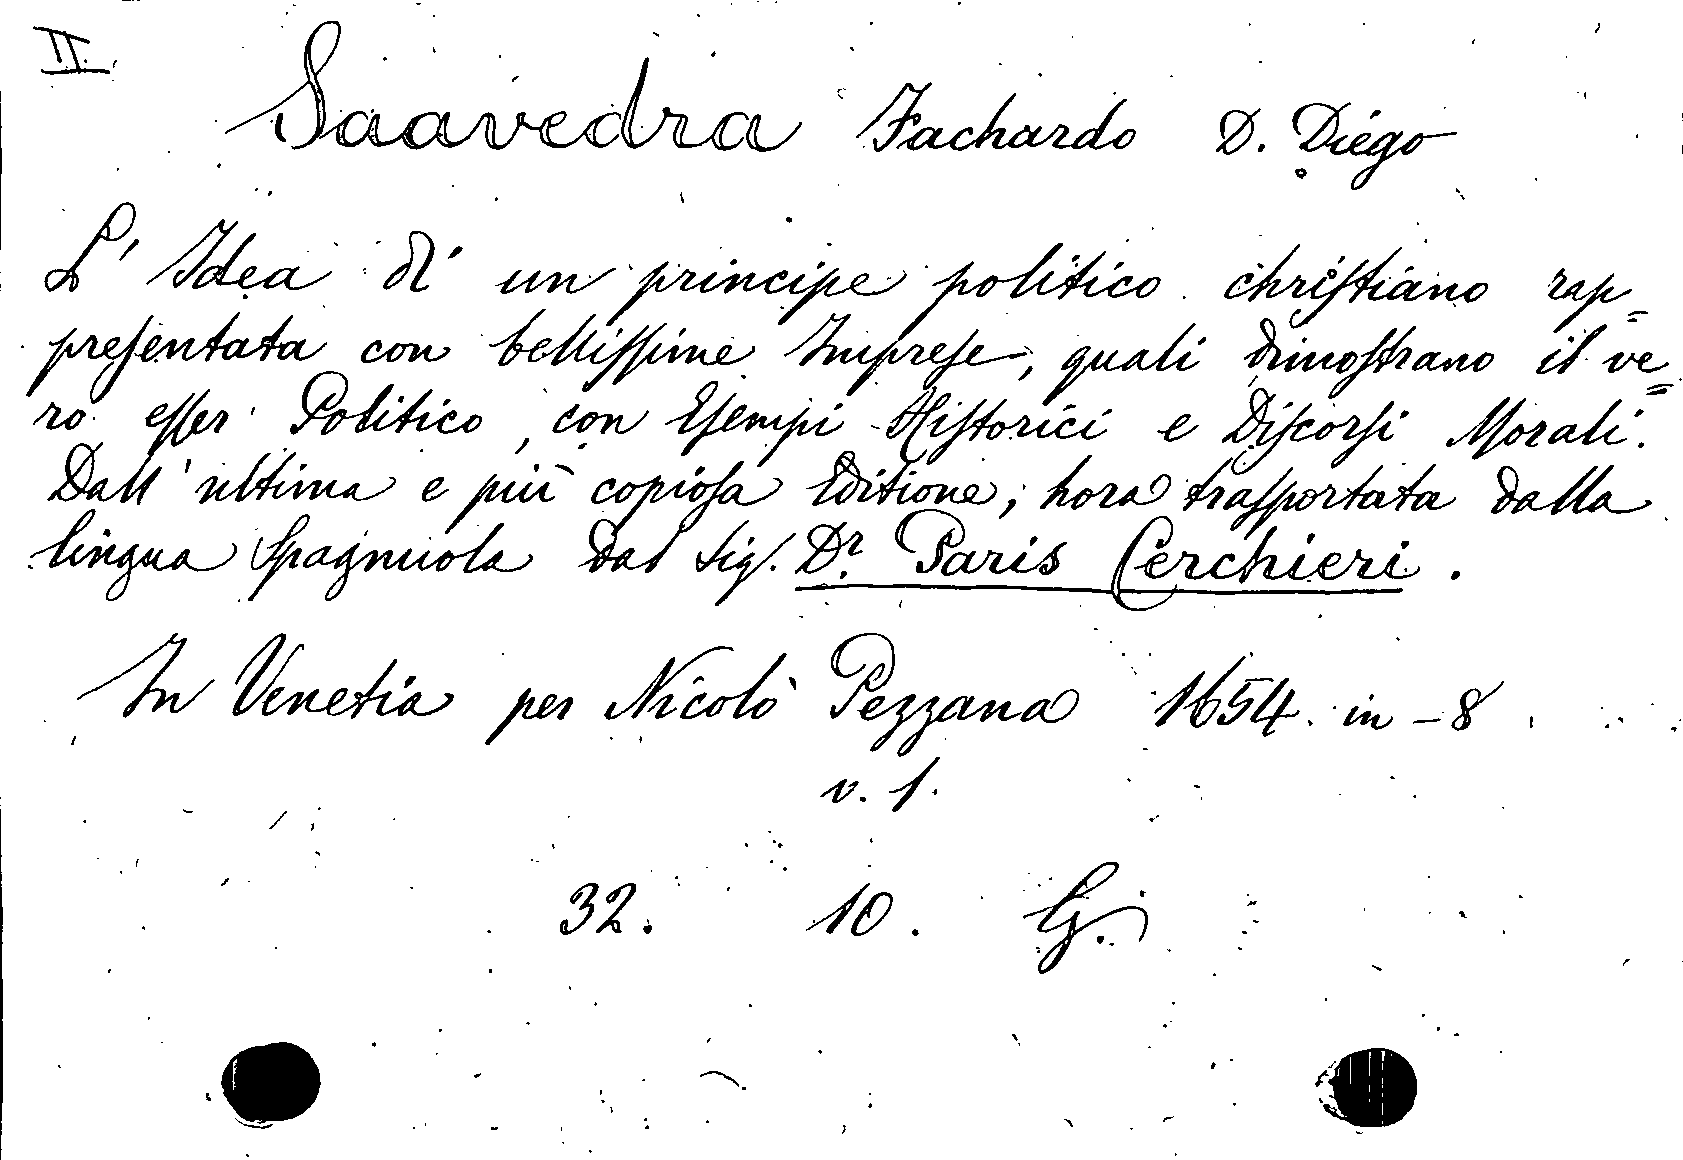 II.
Saavedra Fachardo D. Diego
L' Idea di un principe politico christiano rap=
presentata con bellissime Imprese, quali dimostrano il ve=
ro esser Politico, con Esempi Historici e Discorsi Morali.
Dall'ultima e più copiosa Editione, hora trasportata dalla
lingua Spagnuola dal Sig. Dr. Paris Cerchieri.
In Venetia per Nicolò Pezzana 1654. in-8
v. 1.
32. 10. G.